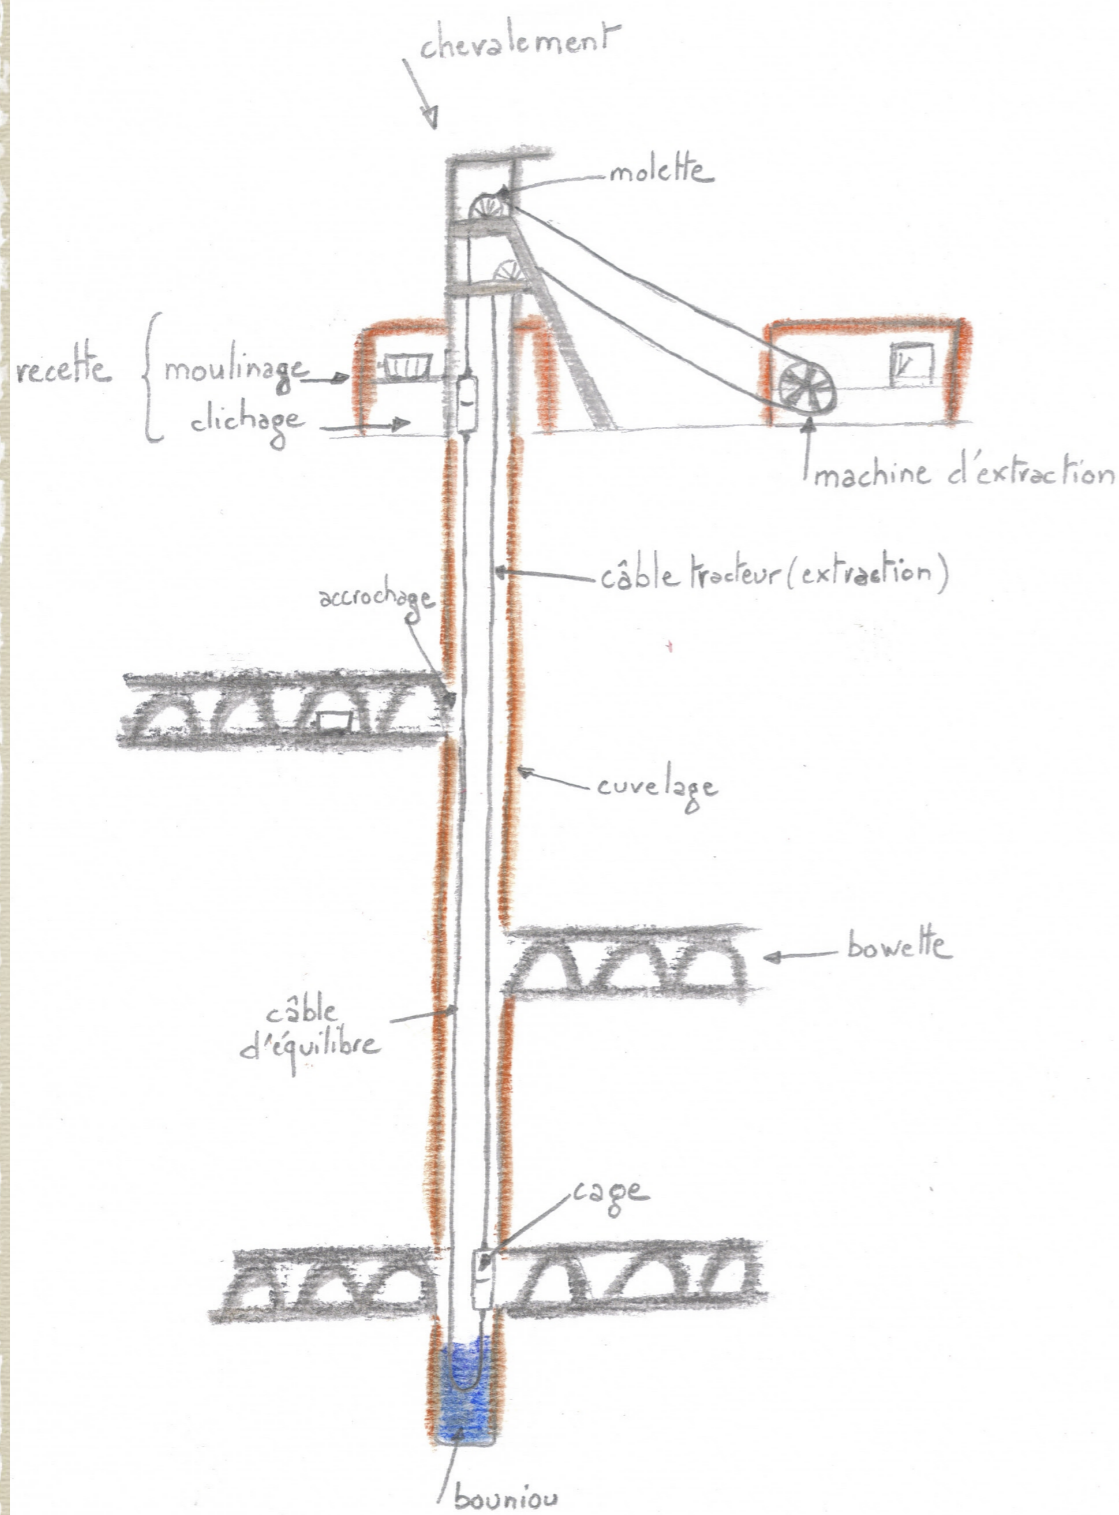 chevalement
molette
recette
moulinage
clichage
machine d'extraction
câble tracteur (extraction)
accrochage
cuvelage
bowette
câble
d'équilibre
cage
bouniou